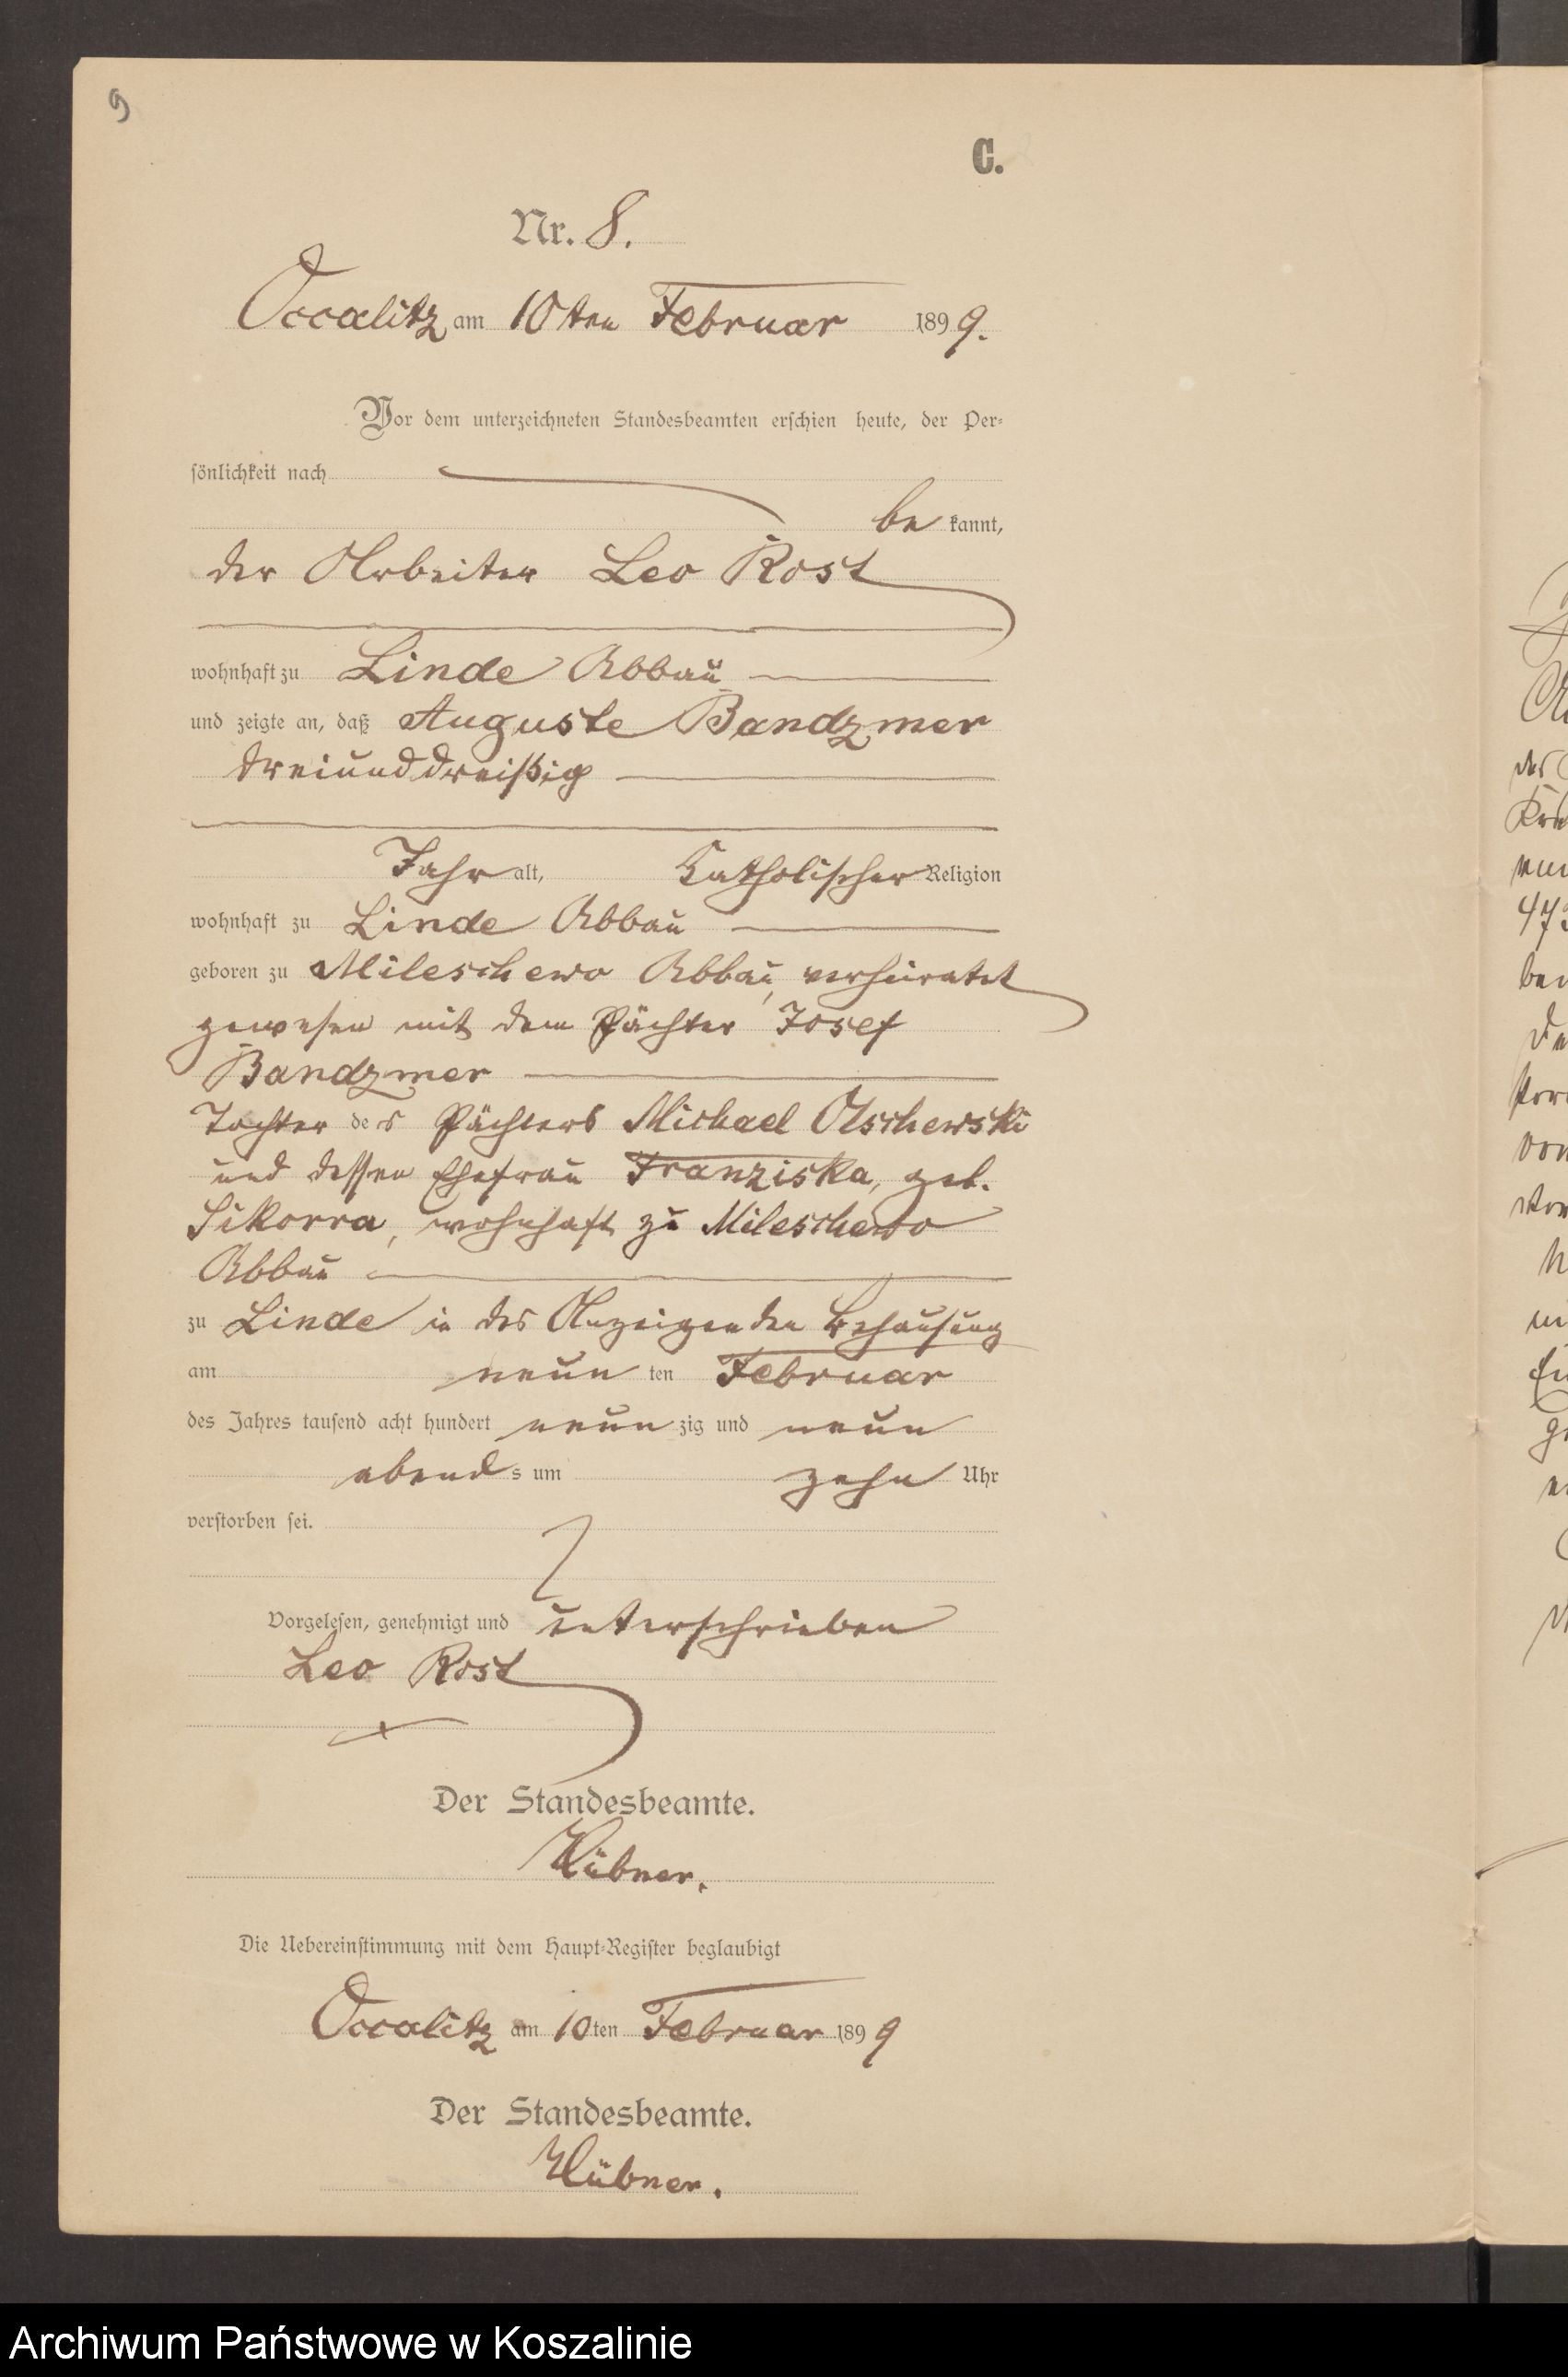 9
C.
Nr. 8.
Occalitz am 10ten Februar 1899.
Vor dem unterzeichneten Standesbeamten erschien heute, der Per-
sönlichkeit nach
be kannt,
der Arbeiter Leo Rost
wohnhaft zu Linde Abbau
und zeigte an, daß Auguste Bandzmer
dreiunddreißig
Jahr alt, katholischer Religion
wohnhaft zu Linde Abbau
geboren zu Mileschewo Abbau, verheiratet
gewesen mit dem Pächter Josef
Bandzmer
Tochter des Pächters Michael Olschewski
und dessen Ehefrau Franziska, geb.
Sikorra, wohnhaft zu Mileschewo
Abbau
zu Linde in des Anzeigenden Behausung
am neun ten Februar
des Jahres tausend acht hundert neun zig und neun
abend s um zehn Uhr
verstorben sei.
Vorgelesen, genehmigt und unterschrieben
Leo Rost
Der Standesbeamte.
Hübner.
Die Uebereinstimmung mit dem Haupt-Register beglaubigt
Occalitz am 10ten Februar 1899
Der Standesbeamte.
Hübner.
Archiwum Państwowe w Koszalinie